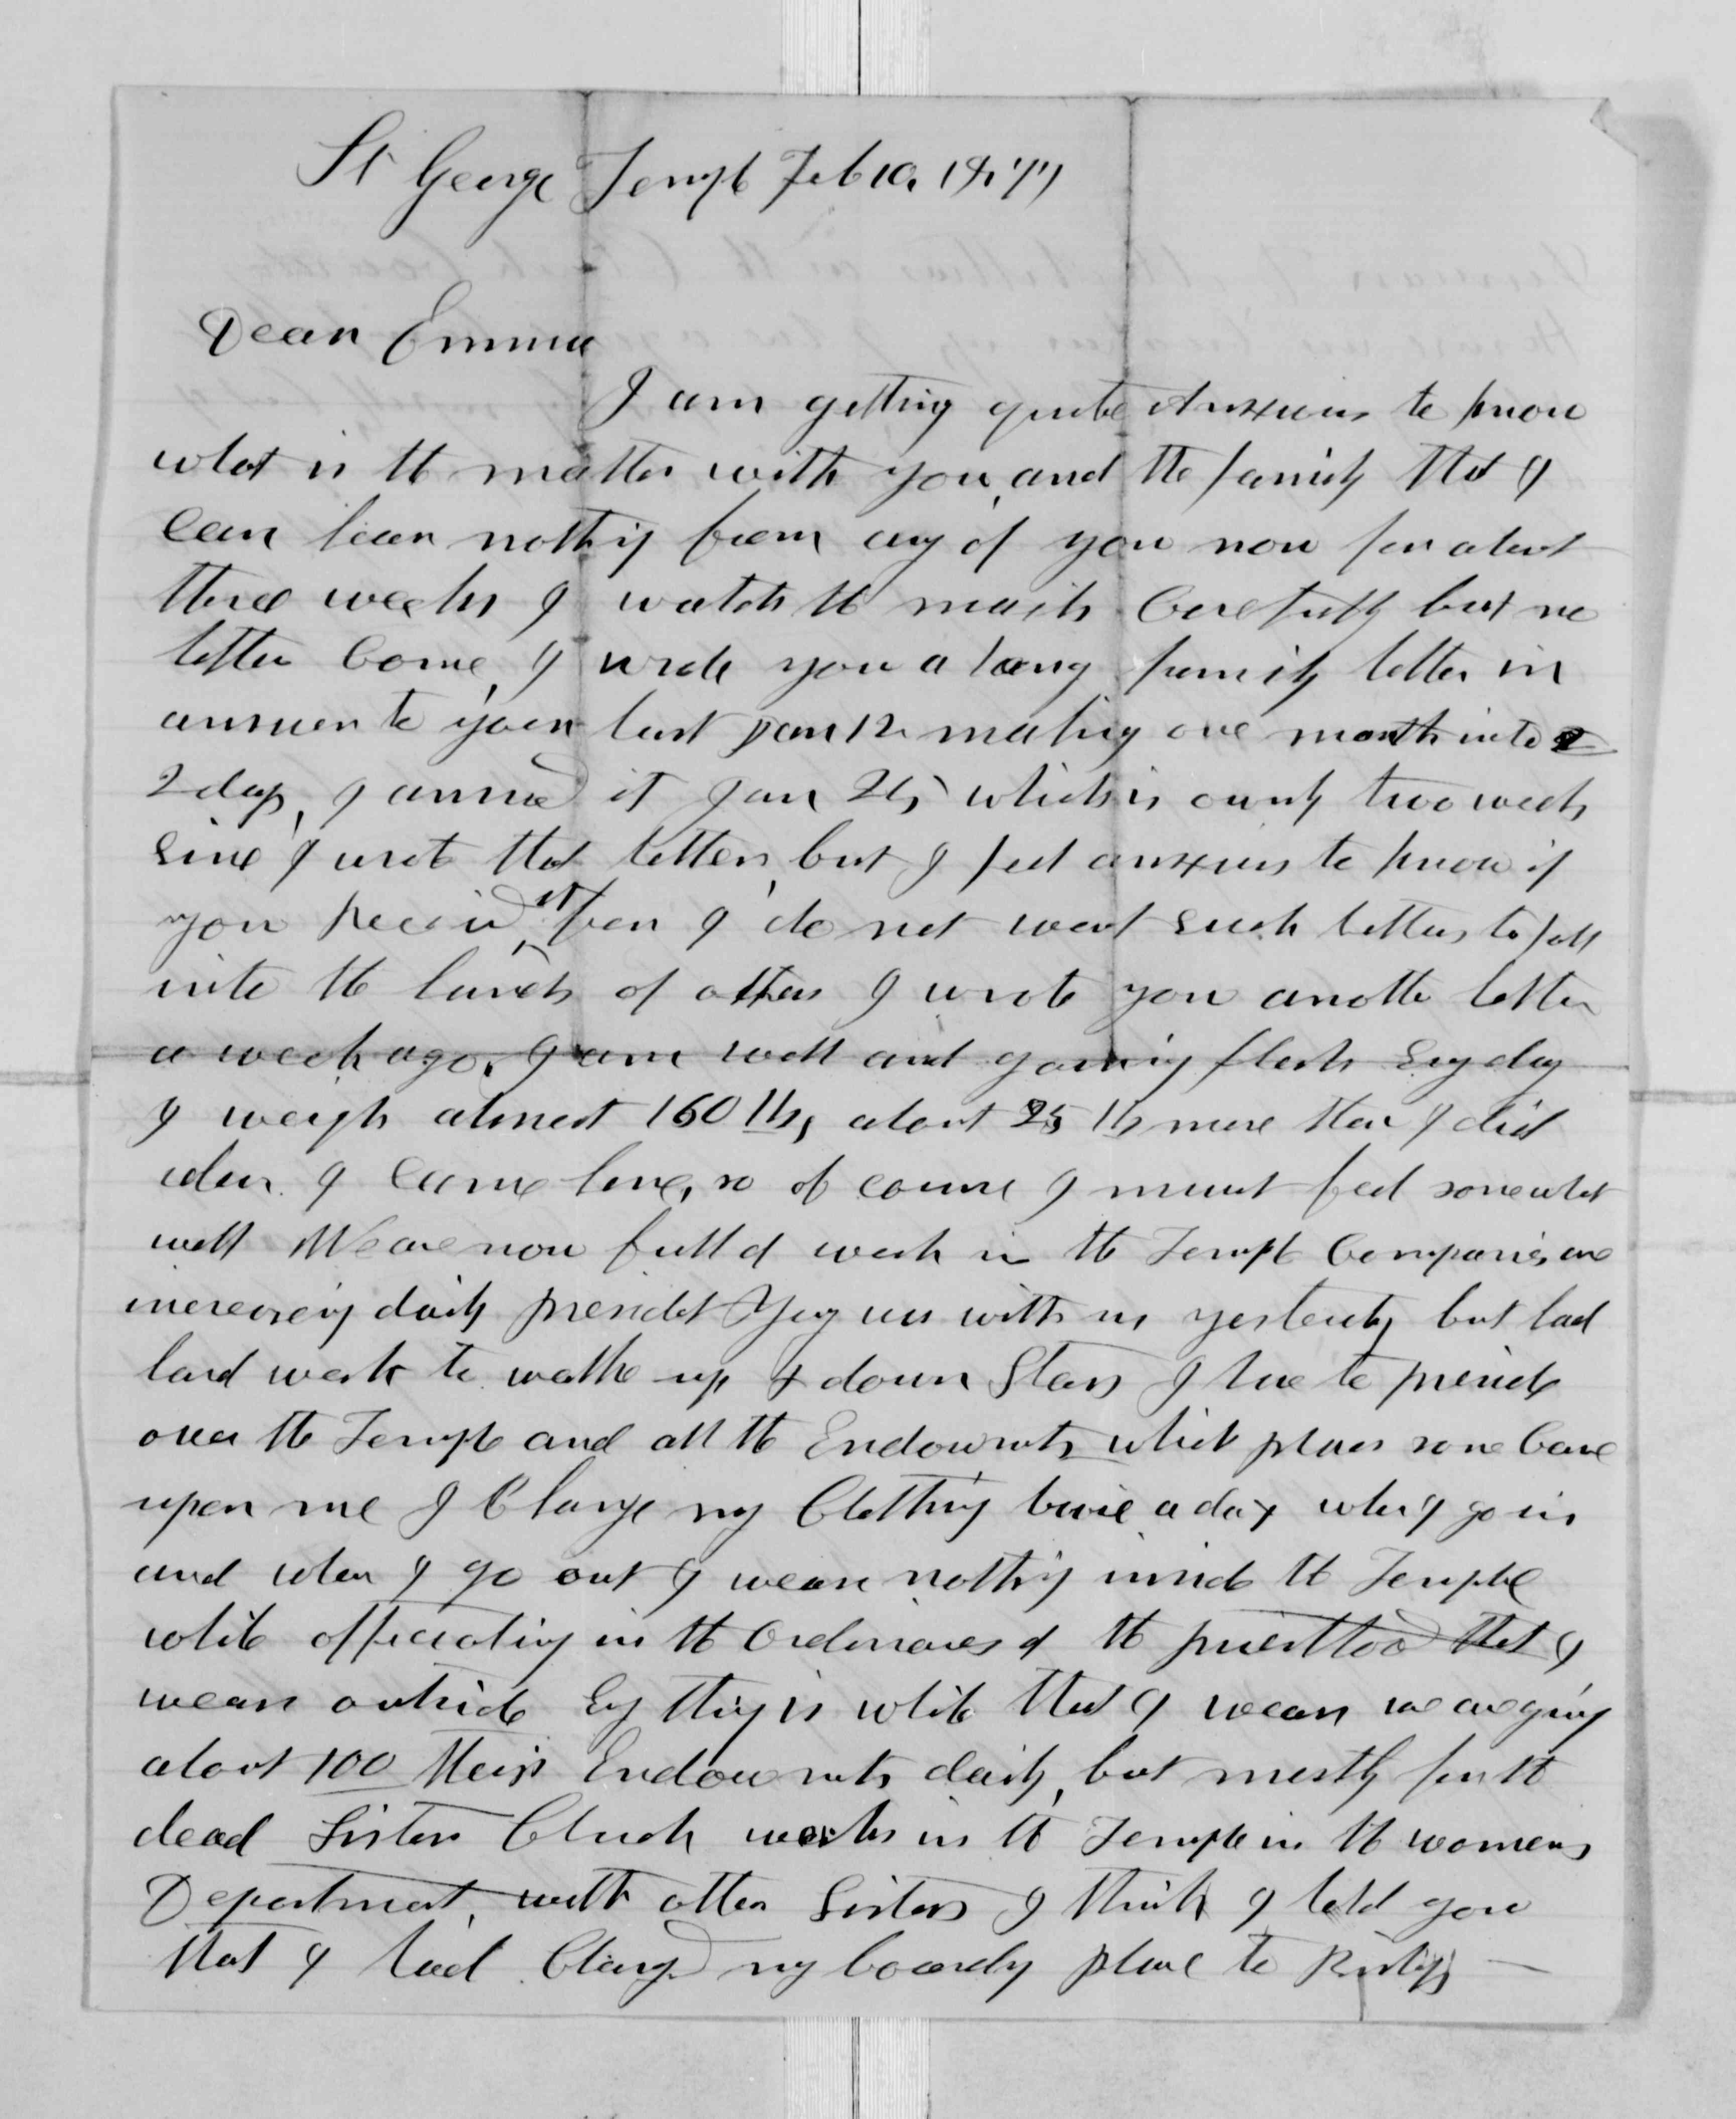 St George Temple Feb 10, 1877
Dear Emma
I am getting quite Anxious to know
what is the matter with you, and the family that I
Can hear nothing from any of you now for about
three weeks I watch the mails Carefully but no
letter Come, I wrote you a long family letter in
answer to your last Jan 12 making one month into
2 days, I answered it Jan 25 which is ownly two weeks
Since I wrote that letter, but I feel anxious to know if
you Received it for I do not want such letters to fall
into the hands of others I wrote you another letter
a week ago. I am well and gaining flesh Evry day
I weigh almost 160 lbs, about 25 lb more than I did
when I came here, so of course I must feel somewhat
well We are now full of work in the Temple Companies are
increasing daily President Young was with us yesterday but had
hard work to walk up & down Stars I have to preside
over the Temple and all the Endowments which places some Care
upon me I Change my Clothing twice a day when I go in
and when I go out I wear nothing inside the Temple
while officiating in the Ordinances of the priesthood that I
wear outside Evry thing is white that I wear we are giving
about 100 Their Endowments daily, but mostly for the
dead Sister Church works in the Temple in the womens
Department, with other Sisters I think I told you
that I had Changed my boarding place to